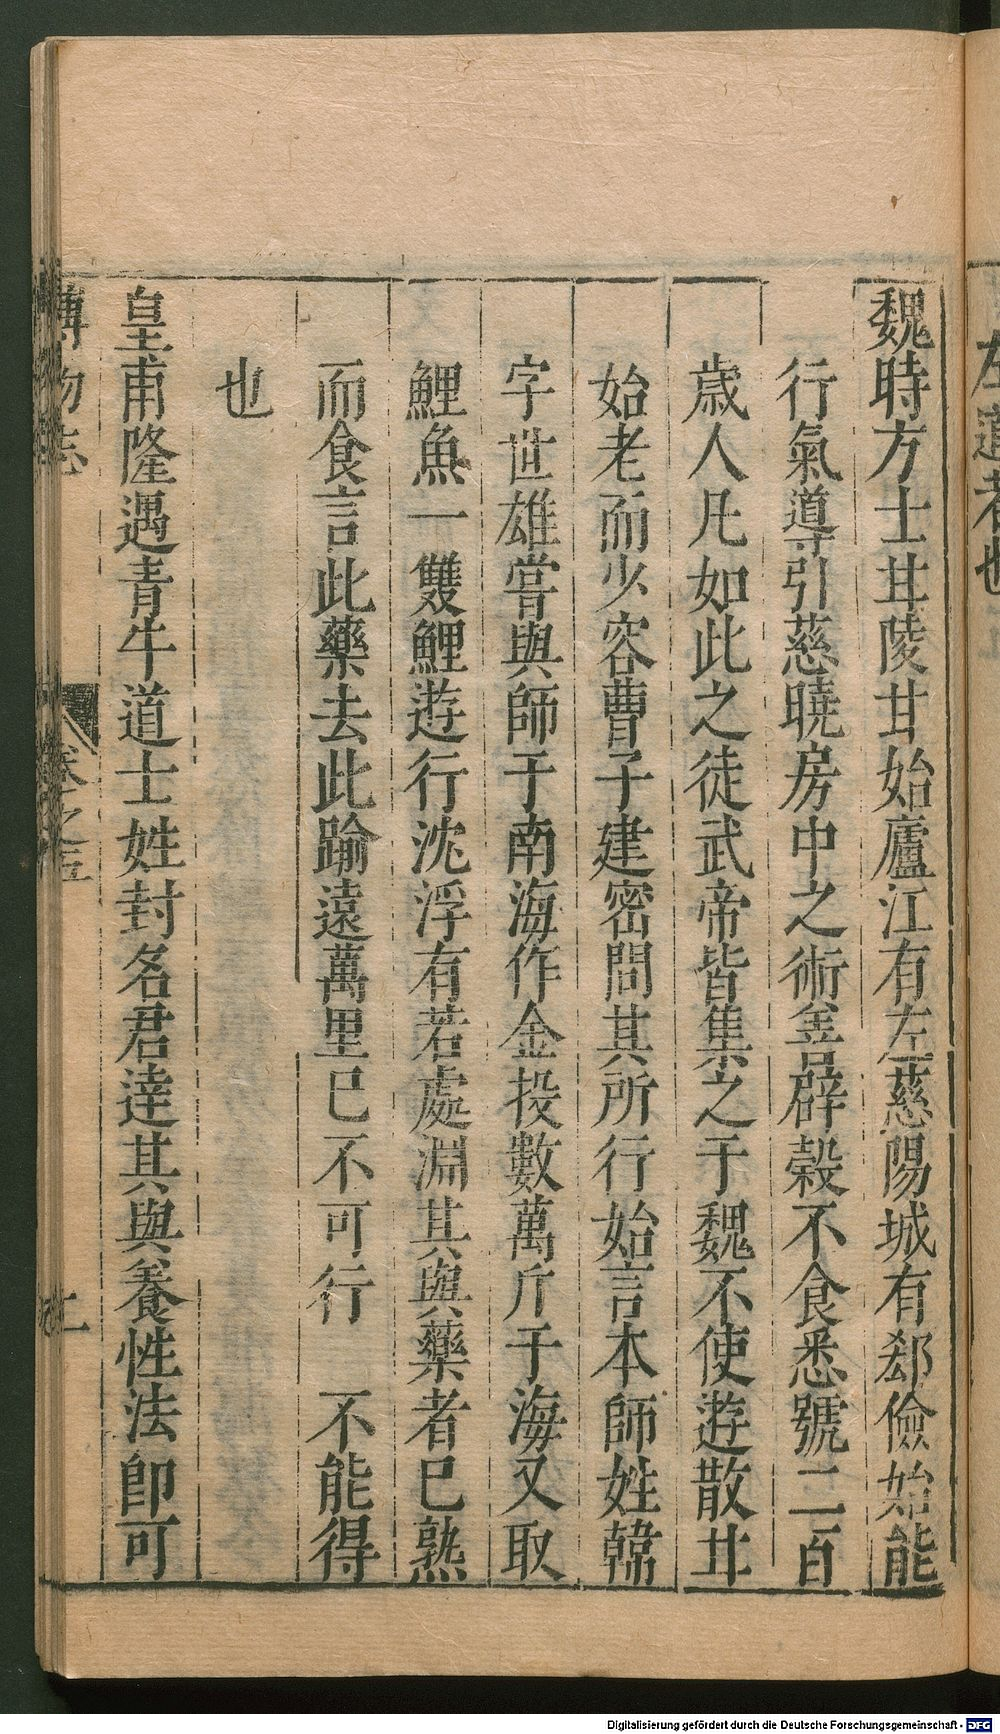 左道者也
魏時方士甘陵甘始廬江有左慈陽城有郄儉始能
行氣導引慈曉房中之術善辟糓不食悉號二百
歲人凡如此之徒武帝皆集之于魏不使遊散甘
始老而少容曹子建密問其所行始言本師姓韓
字世雄嘗與師于南海作金投數萬斤于海又取
鯉魚一雙鯉遊行沈浮有若處淵其與藥者已熟
而食言此藥去此踰遠萬里已不可行　不能得
也
皇甫隆遇青牛道士姓封名君逹其與養性法卽可
博物志
卷之五
Digitalisierung gefördert durch die Deutsche Forschungsgemeinschaft - DFG